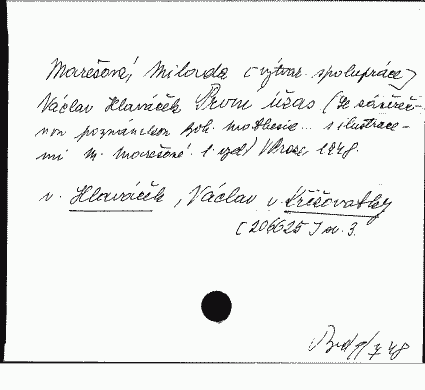 Marešová, Milada [výtvar. spolupráce]
Václav Hlaváček První úžas (Se závěreč-
nou poznámkou Boh. Mathesia... s ilustrace-
mi M. Marešové. 1. vyd.) V Praze 1948.
v. Hlaváček, Václav v. Křižovatky
[206625] sv. 3.
48